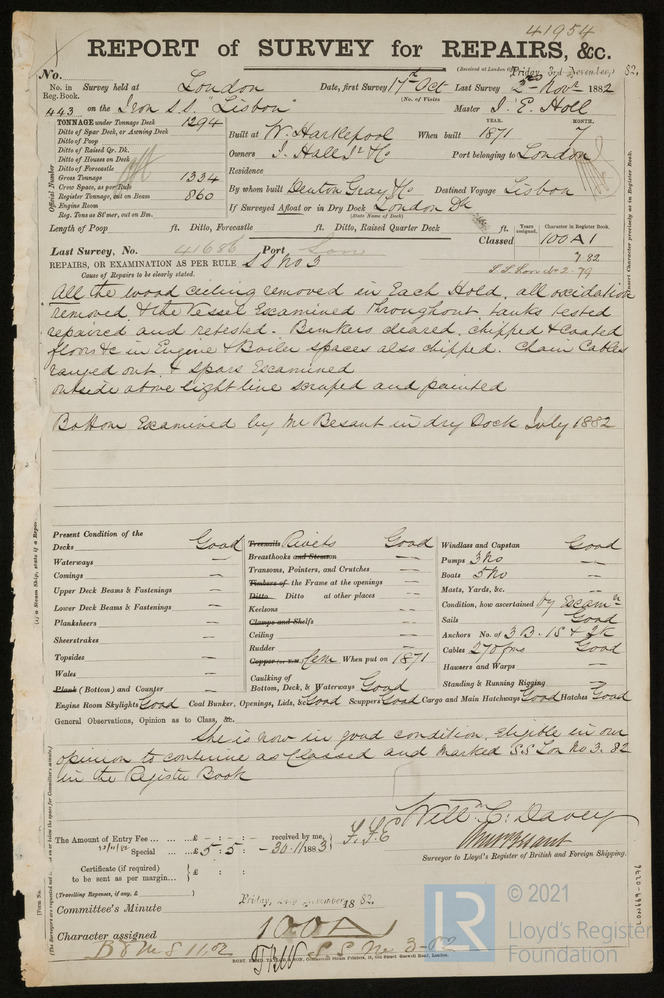 41954
REPORT of SURVEY for REPAIRS, &c.
(Received at London Friday 3rd November, 82.
No.
No. in Reg. Book. Survey held at London Date, first Survey 17th Oct Last Survey 2nd Novr 1882
(No. of Visits
443 on the Iron S.S. "Lisbon" Master J. E. Holl
TONNAGE under Tonnage Deck 1294
Ditto of Spar Deck, or Awning Deck
Ditto of Poop
Ditto of Raised Qr. Dk.
Ditto of Houses on Deck
Ditto of Forecastle
Gross Tonnage 1334
Crew Space, as per Rule
Register Tonnage, cut on Beam 860
Engine Room
Reg. Tons as St'mer, cut on Bm.
Official Number
YEAR. MONTH.
Built at W. Hartlepool When built 1871 7
Owners J. Hall Jr & Co Port belonging to London
Residence
By whom built Denton Gray & Co Destined Voyage Lisbon
If Surveyed Afloat or in Dry Dock London Dk
(State Name of Dock)
Length of Poop ft. Ditto, Forecastle ft. Ditto, Raised Quarter Deck ft.
Years assigned. Character in Register Book.
Classed 100 A 1
7.82
S.S. Lon No 2-79
Last Survey, No. 41686 Port Lon
REPAIRS, OR EXAMINATION AS PER RULE SS No 3
Cause of Repairs to be clearly stated.
All the wood ceiling removed in Each Hold, all oxidation
removed & the Vessel Examined throughout, tanks tested
repaired and retested. Bunkers cleared, chipped & Coated
floors &c in Engine & Boiler spaces also chipped. Chain Cables
ranged out & Spars Examined
outside above light line scraped and painted
Bottom Examined by Mr Besant in dry Dock July 1882
Present Condition of the
Decks Good
Waterways —
Comings —
Upper Deck Beams & Fastenings —
Lower Deck Beams & Fastenings —
Planksheers —
Sheerstrakes —
Topsides —
Wales —
Plank (Bottom) and Counter —
Treenails Rivets Good
Breasthooks and Stemson —
Transoms, Pointers, and Crutches —
Timbers of the Frame at the openings —
Ditto Ditto at other places —
Keelsons —
Clamps and Shelfs
Ceiling —
Rudder —
Copper (or Y.M. Cem When put on 1871
Caulking of
Bottom, Deck, & Waterways Good
Windlass and Capstan Good
Pumps 3 No —
Boats 5 No —
Masts, Yards, &c. —
Condition, how ascertained by Examn
Sails Good
Anchors No. of 3 B. 1 S & 2 K
Cables 270 fms Good
Hawsers and Warps —
Standing & Running Rigging —
Engine Room Skylights Good Coal Bunker, Openings, Lids, &c Good Scuppers Good Cargo and Main Hatchways Good Hatches Good
General Observations, Opinion as to Class, &c.
She is now in good condition, eligible in our
opinion to continue as Classed and marked S.S Lon No 3. 82
in the Register Book
Willm C. Davey
Surveyor to Lloyd's Register of British and Foreign Shipping.
The Amount of Entry Fee ... £ - : - : - received by me,
Special ... £ 5 : 5 : - 30.11.1883
Certificate (if required) to be sent as per margin... £ : :
(Travelling Expenses, if any, £ )
Committee's Minute Friday, November 1882.
Character assigned 100A
B & M S 11,82
S.S No 3-82
LON669-0276
LR
© 2021
Lloyd's Register
Foundation